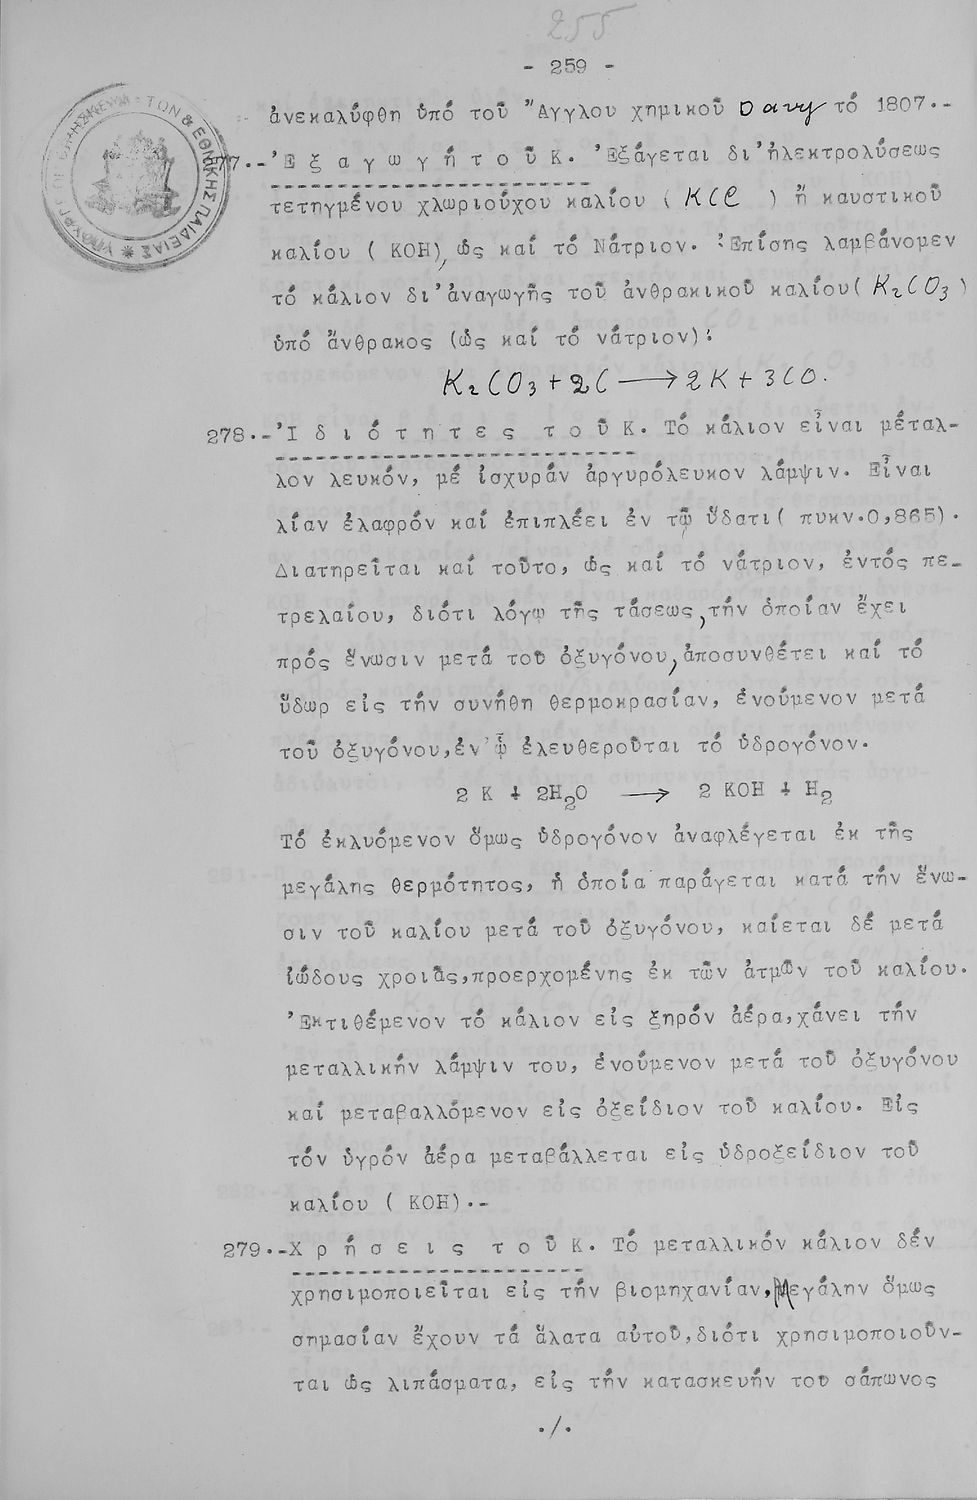 255
- 259 -
ἀνεκαλύφθη ὑπό τοῦ Ἄγγλου χημικοῦ Davy τό 1807.-
277.-Ἐ ξ α γ ω γ ή τ ο ῦ Κ. Ἐξάγεται δι'ἠλεκτρολύσεως
τετηγμένου χλωριούχου καλίου ( KCl ) ἤ καυστικοῦ
καλίου ( ΚΟΗ), ὡς καί τό Νάτριον. Ἐπίσης λαμβάνομεν
τό κάλιον δι'ἀναγωγῆς τοῦ ἀνθρακικοῦ καλίου( K₂CO₃ )
ὑπό ἄνθρακος (ὡς καί τό νάτριον):
K₂CO₃ + 2C → 2K + 3CO.
278.-Ἰ δ ι ό τ η τ ε ς τ ο ῦ Κ. Τό κάλιον εἶναι μέταλ-
λον λευκόν, μέ ἰσχυράν ἀργυρόλευκον λάμψιν. Εἶναι
λίαν ἐλαφρόν καί ἐπιπλέει ἐν τῷ ὕδατι( πυκν.0,865).
Διατηρεῖται καί τοῦτο, ὡς καί τό νάτριον, ἐντός πε-
τρελαίου, διότι λόγῳ τῆς τάσεως, τήν ὁποίαν ἔχει
πρός ἕνωσιν μετά του ὀξυγόνου, ἀποσυνθέτει καί τό
ὕδωρ εἰς τήν συνήθη θερμοκρασίαν, ἑνούμενον μετά
τοῦ ὀξυγόνου,ἐν ᾧ ἐλευθεροῦται τό ὑδρογόνον.
2 Κ + 2Η₂Ο → 2 ΚΟΗ + Η₂
Τό ἐκλυόμενον ὅμως ὑδρογόνον ἀναφλέγεται ἐκ τῆς
μεγάλης θερμότητος, ἡ ὁποία παράγεται κατά τήν ἕνω-
σιν τοῦ καλίου μετά τοῦ ὀξυγόνου, καίεται δέ μετά
ἰώδους χροιᾶς,προερχομένης ἐκ τῶν ἀτμῶν τοῦ καλίου.
Ἐκτιθέμενον τό κάλιον εἰς ξηρόν ἀέρα,χάνει τήν
μεταλλικήν λάμψιν του, ἑνούμενον μετά τοῦ ὀξυγόνου
καί μεταβαλλόμενον εἰς ὀξείδιον τοῦ καλίου. Εἰς
τόν ὑγρόν ἀέρα μεταβάλλεται εἰς ὑδροξείδιον τοῦ
καλίου ( ΚΟΗ).-
279.-Χ ρ ή σ ε ι ς τ ο ῦ Κ. Τό μεταλλικόν κάλιον δέν
χρησιμοποιεῖται εἰς τήν βιομηχανίαν, Μεγάλην ὅμως
σημασίαν ἔχουν τά ἅλατα αὐτοῦ,διότι χρησιμοποιοῦν-
ται ὡς λιπάσματα, εἰς τήν κατασκευήν του σάπωνος
./.